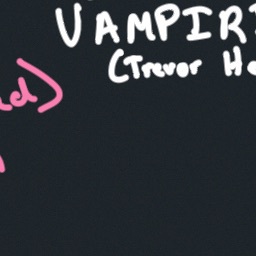 VAMPIRI
(Trevor He